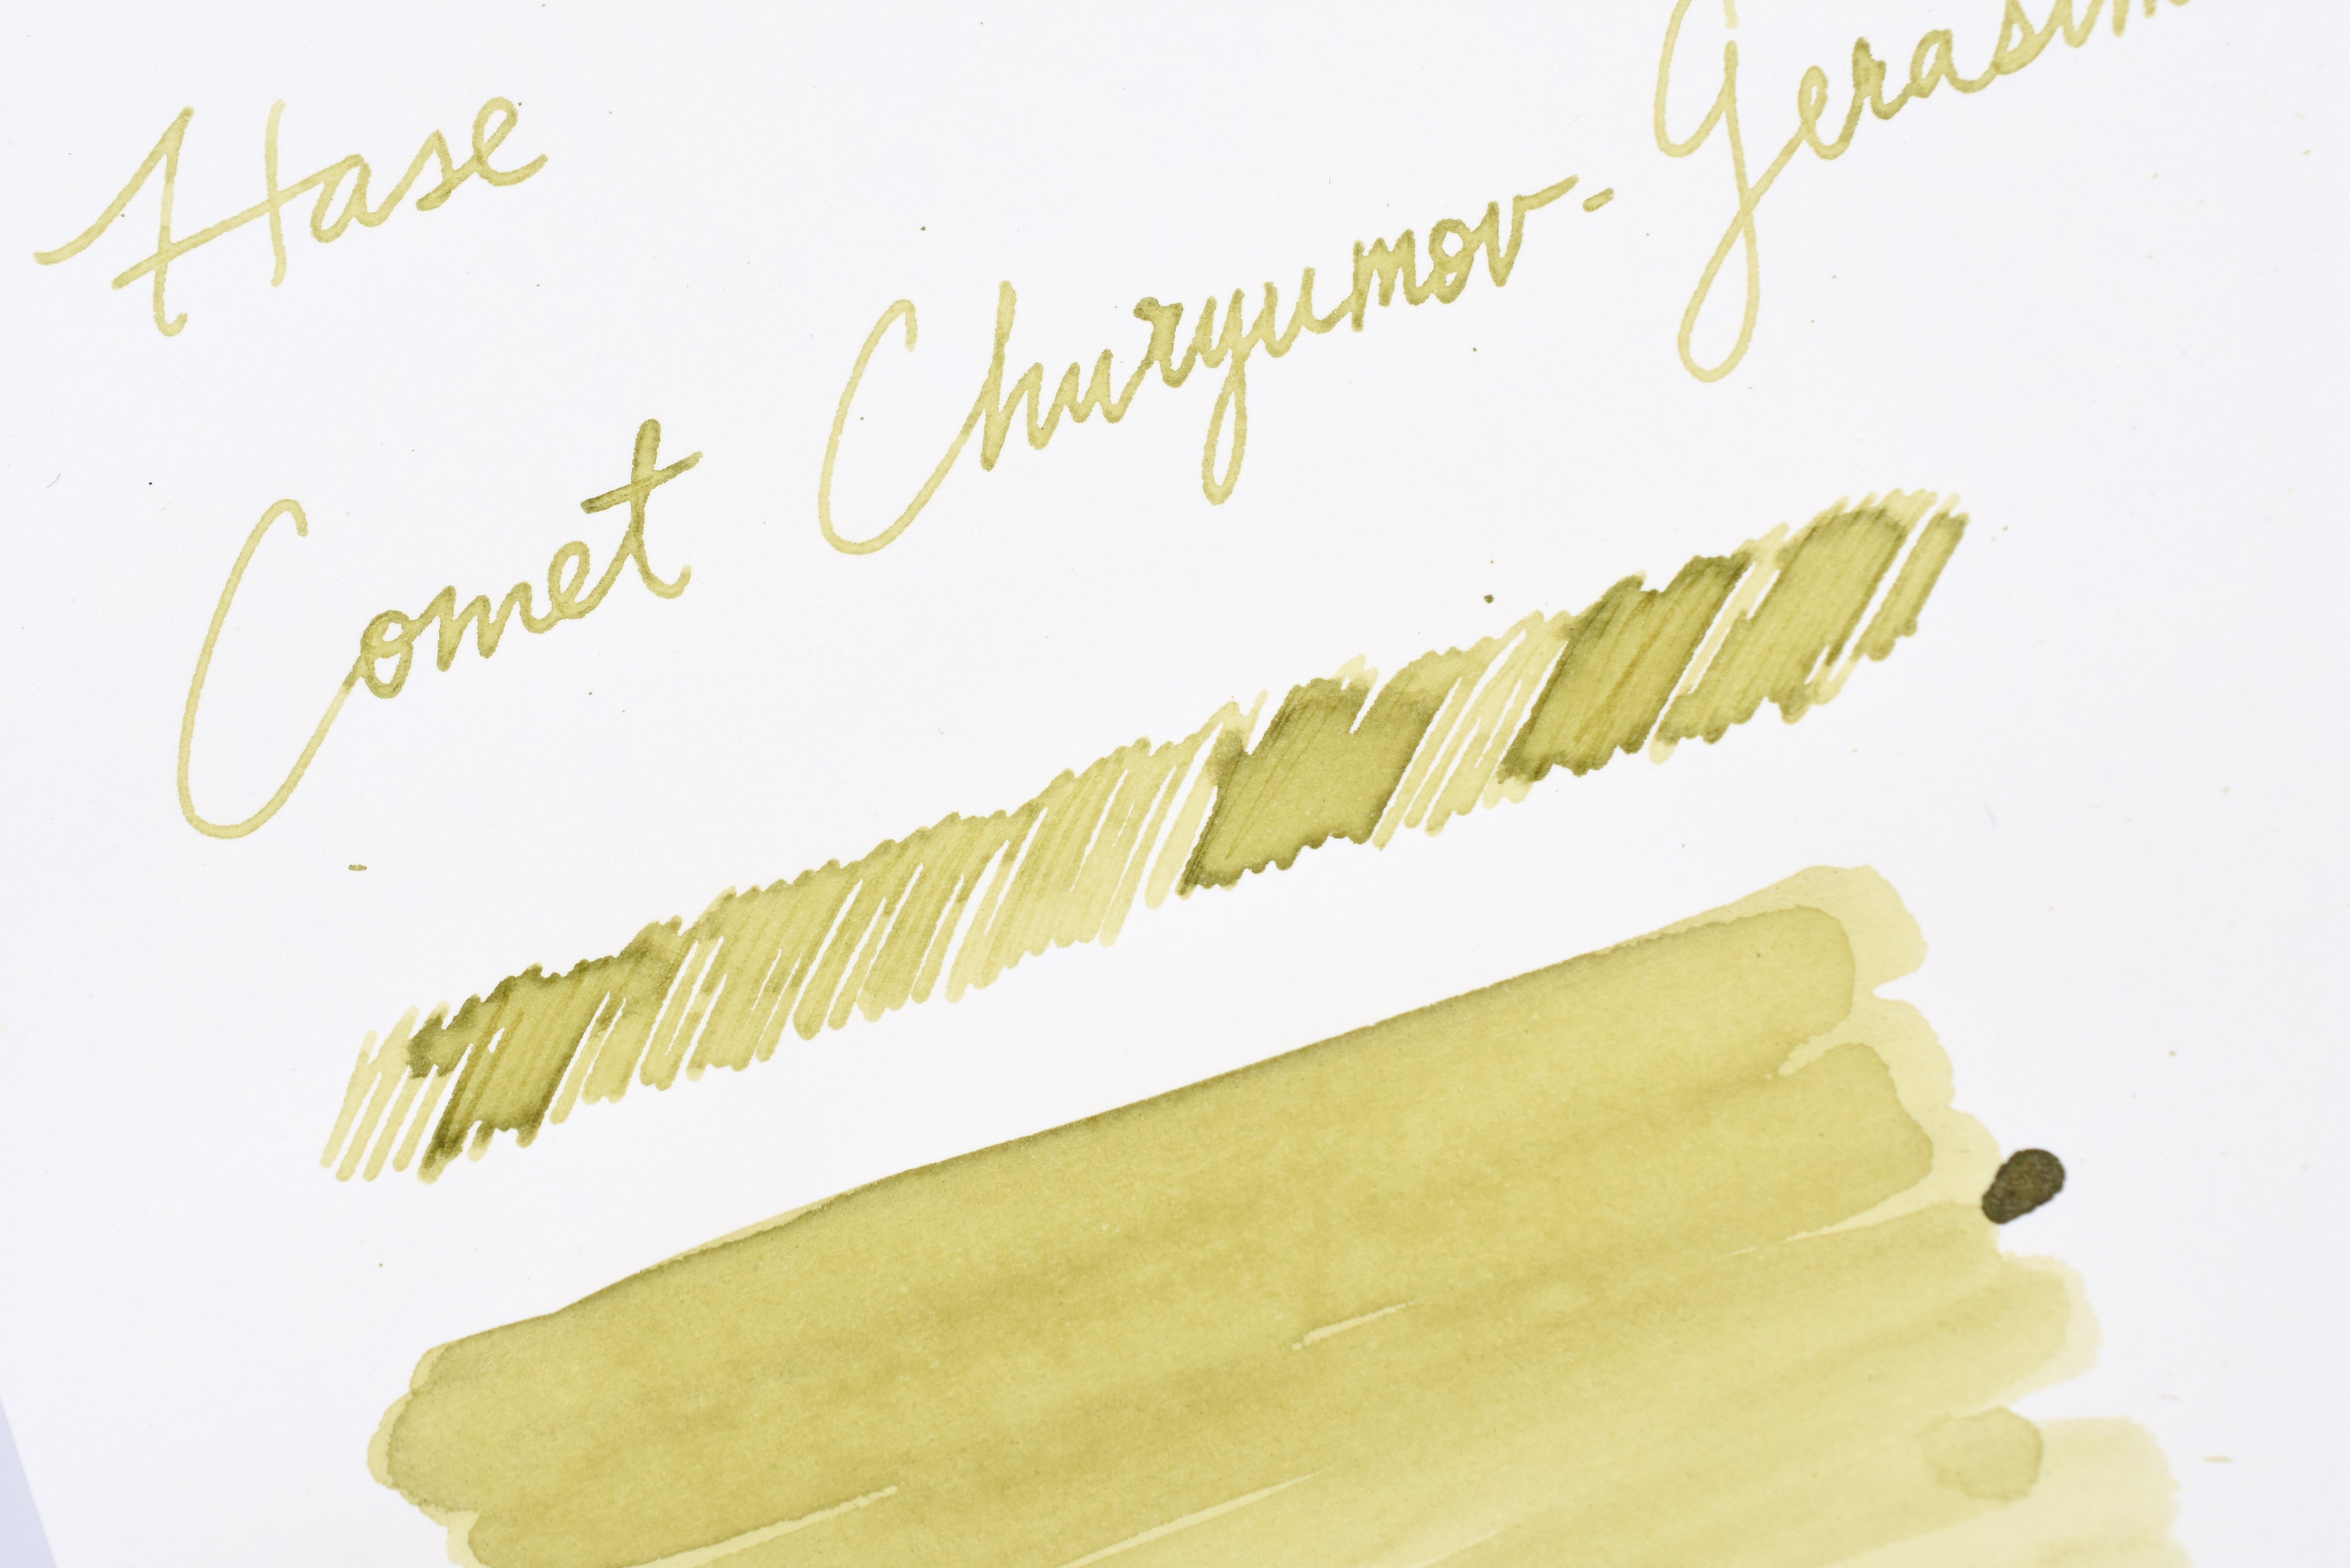 Hase
Comet Churyumov-Gerasim